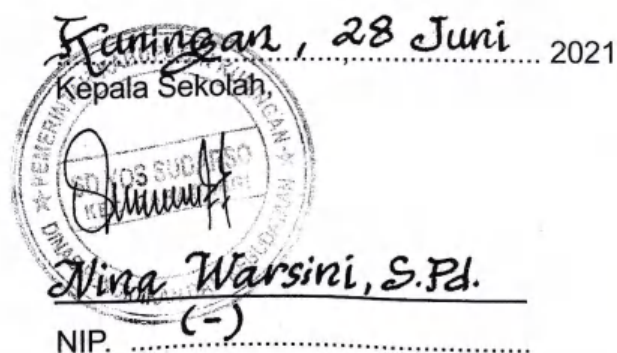 Kuningan, 28 Juni 2021
Kepala Sekolah,
SD YOS SUDARSO
Nina Warsini, S.Pd.
NIP. (-)